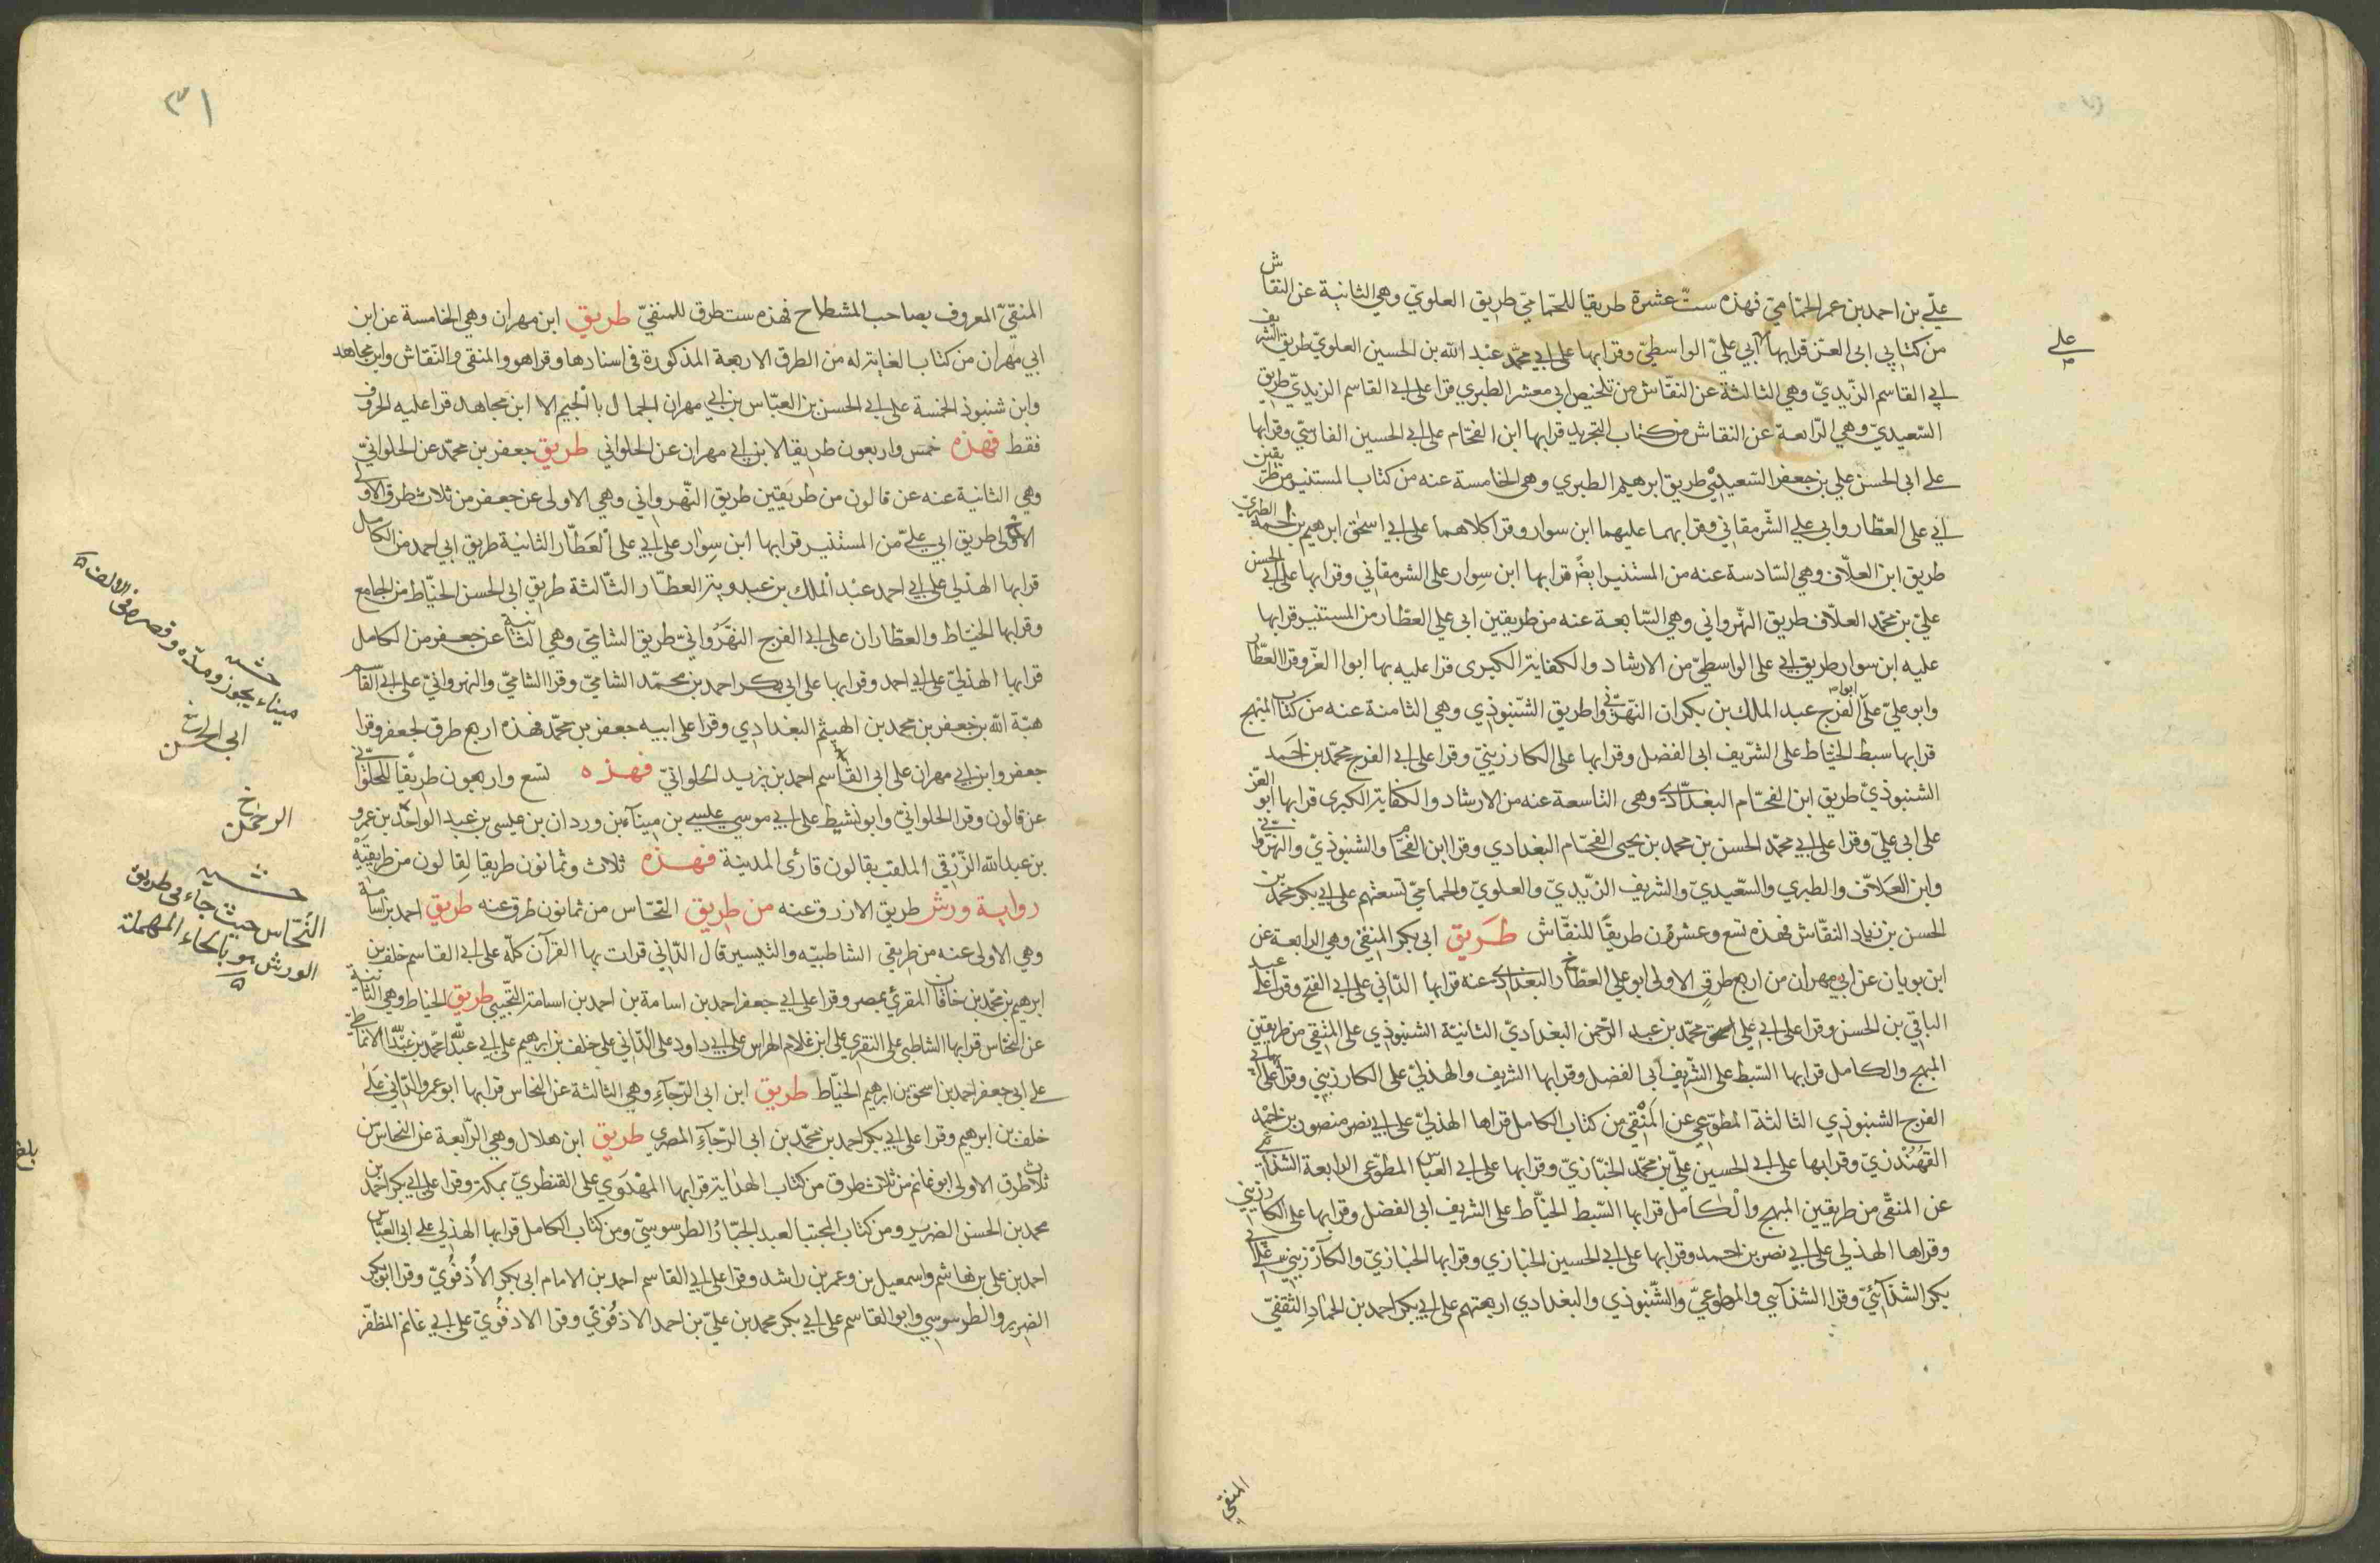 علي بن احمد بن عمر الحمّاميّ فهذه ستّ عشرة طريقا للحمّاميّ طريق العلويّ وهي الثانية عن النقاش
من كتابي ابي العز قرابها ابي عليّ الواسطيّ وقرابها على ابي محمّد عبد الله بن الحسين العلويّ طريق الشريف
على
ابي القاسم الزّيديّ وهي الثالثة عن النقّاش من تلخيص ابي معشر الطبري قرا على ابي القاسم الزيديّ طريق
السّعيديّ وهي الرّابعة عن النقاش من كتاب التجريد قرابها ابن الفحّام على ابي الحسين الفارسيّ وقرابها
على ابي الحسن علي بن جعفر السّعيديّ طريق ابرهيم الطبري وهي الخامسة عنه من كتاب المستنير من طريقين
ابي علي العطّار وابي علي الشّرمقاني وقرا بهما عليهما ابن سوار وقرا كلاهما على ابي اسحٰق ابرهيم بن احمد الطبريّ
طريق ابن العلّاف وهي السّادسة عنه من المستنير ايضً قرابها ابن سوار على الشرمقاني وقرابها على ابي الحسن
عليّ بن محمّد العلّاف طريق النّهرواني وهي السّابعة عنه من طريقين ابي علي العطّار من المستنير قرابها
عليه ابن سوار طريق ابي على الواسطيّ من الارشاد والكفاية الكبرى قرا عليه بها ابوا العزّ وقرا العطّار
وابو عليّ على ابو الفرج عبد الملك بن بكران النّهروانيّ طريق الشّنبوذي وهي الثامنة عنه من كتاب المبهج
قرابها سبط الخيّاط على الشّريف ابي الفضل وقرابها على الكارزينيّ وقرا على ابي الفرج محمّد بن احمد
الشنبوذيّ طريق ابن الفحّام البغداديّ وهي التاسعة عنه من الارشاد والكفاية الكبرى قرابها ابو العز
على ابي عليّ وقرا على ابي محمّد الحسن بن محمد بن يحيى الفحّام البغدادي وقرا ابن الفحّام والشنبوذيّ والنهروانيّ
وابن العلّاف والطبري والسّعيديّ والشريف الزّيديّ والعلويّ والحمّاميّ تسعتهم على ابي بكر محمّد بن
الحسن بن زياد النقّاش فهذه تسع وعشرون طريقًا للنقّاش طريق ابي بكر المنقّي وهي الرابعة عن
ابن بويان عن ابي مهران من اربع طرق الاولى ابو علي العطّار البغدادي عنه قرابها الدّاني على ابي الفتح وقرا على عبد
الباقي بن الحسن وقرا على ابي علي محمّد بن عبد الرّحمن البغداديّ الثانيّة الشنبوذي على المنقي من طريقين
المبهج والكامل قرابها السّبط على الشّريف ابي الفضل وقرابها الشريف والهذليّ على الكارزيني وقرا على ابي
الفرج الشنبوذي الثالثة المطّوّعي عن المنقي من كتاب الكامل قراها الهذليّ على ابي نصر منصور بن احمد
القهندزي وقرابها على ابي الحسين عليّ بن محمّد الخبّازيّ وقرابها على ابي العباس المطوّعي الرابعة الشذائي
عن المنقّي من طريقين المبهج والكامل قرابها السّبط الخيّاط على الشريف ابي الفضل وقرابها على الكارزيني
وقراها الهذلي على ابي نصر بن احمد وقرابها على ابي الحسين الخبازي وقرابها الخبازيّ والكارزيني على ابي
بكر الشّذآئيّ وقرا الشذآئي والمطوعيّ والشّنبوذي والبغدادي اربعتهم على ابي بكر احمد بن الحمّاد الثقفيّ
المنقي
٣١
المنقيّ المعروف بصاحب المشطاح فهذه ست طرق للمنقيّ طريق ابن مهران وهي الخامسة عن ابن
ابي مهران من كتاب لغاية له من الطرق الاربعة المذكورة في اسنادها وقرا هو والمنقي والنّقاش وابن مجاهد
وابن شنبوذ الخمسة على ابي الحسن بن العبّاس بن ابي مهران الجمال بالجيم الا ابن مجاهد قرا عليه الحروف
فقط فهذه خمس واربعون طريقا لابن ابي مهران عن الحلواني طريق جعفر بن محمّد عن الحلوانيّ
وهي الثانية عنه عن قالون من طريقين طريق النّهرواني وهي الاولى عن جعفر من ثلاث طرق الاولى
طريق ابي عليّ من المستنير قرابها ابن سوار على ابي على العطّار الثانية طريق ابي احمد من الكامل
قرابها الهذلي على ابي احمد عبد الملك بن عبدوية العطّار الثّالثة طريق ابي الحسن الخيّاط من الجامع
وقرابها الخيّاط والعطّاران على ابي الفرج النهروانيّ طريق الشاميّ وهي الثانية عن جعفر من الكامل
قرابها الهذليّ على ابي احمد وقرابها على ابي بكر احمد بن محمّد الشاميّ وقرا الشاميّ والنهروانيّ على ابي القاسم
هبة الله بن جعفر بن محمد بن الهيثم البغدادي وقرا على ابيه جعفر بن محمّد فهذه اربع طرق لجعفر وقرا
جعفر وابن ابي مهران على ابي القاسم احمد بن يزيد الحلوانيّ فهذه تسع واربعون طريقًا للحلوانيّ
عن قالون وقرا الحلوانيّ وابو نشيط على ابي موسي عيسي بن ميناء بن وردان بن عيسى بن عبد الواحد بن عمرو
بن عبد الله الزّرقي الملقب بقالون قارئ المدينة فهذه ثلاث وثمانون طريقا لقالون من طريقيه
رواية ورش طريق الازرق عنه من طريق النحّاس من ثمانون طرق عنه طريق احمد بن اسامة
وهي الاولى عنه من طريقي الشاطبيّه والتيسير قال الدّاني قرات بها القرآن كلّه على ابي القاسم خلف بن
ابرهيم بن محمّد بن خاقان المقرئ بمصر وقرا على ابي جعفر احمد بن اسامة بن احمد بن اسامة التّجيبي طريق الخياط وهي الثانية
عن النحّاس قرابها الشاطبي على النفزي على ابن غلام الهراس على ابي داود على الدّاني على خلف بن ابرهيم على ابي عبد الله احمد بن عبد الله الانماطي
على ابي جعفر احمد بن اسحق بن ابرهيم الخيّاط طريق ابن ابي الرّجآء وهي الثالثة عن النحاس قرابها ابو عمرو الدّاني على
خلف بن ابرهيم وقرا على ابي بكر احمد بن محمّد بن ابي الرّجآء المصري طريق ابن هلال وهي الرّابعة عن النحاس من
ثلاث طرق الاولى ابو غانم من ثلاث طرق من كتاب الهداية قرابها المهدوي على القنطريّ بمكة وقرا على ابي بكر احمد بن
محمد بن الحسن الضرير ومن كتاب المجتبا لعبد الجبّار الطرسوسيّ ومن كتاب الكامل قرابها الهذلي على ابي العبّاس
احمد بن علي بن هاشم واسمعيل بن وعمر بن راشد وقرا على ابي القاسم احمد بن الامام ابي بكر الأذفويّ وقرا ابو بكر
الضرير والطرسوسي وابو القاسم على ابي بكر محمد بن عليّ بن احمد الاذفوي وقرا الاذفويّ على ابي غانم المظفّر
ميناء يجوز ومدّه وقصره في الالف
حشيه
ابي الحسن
الرحمن
حشيه
النحّاس حيث جاء في طريق
الورش هو بالحاء المهملة
بلغ